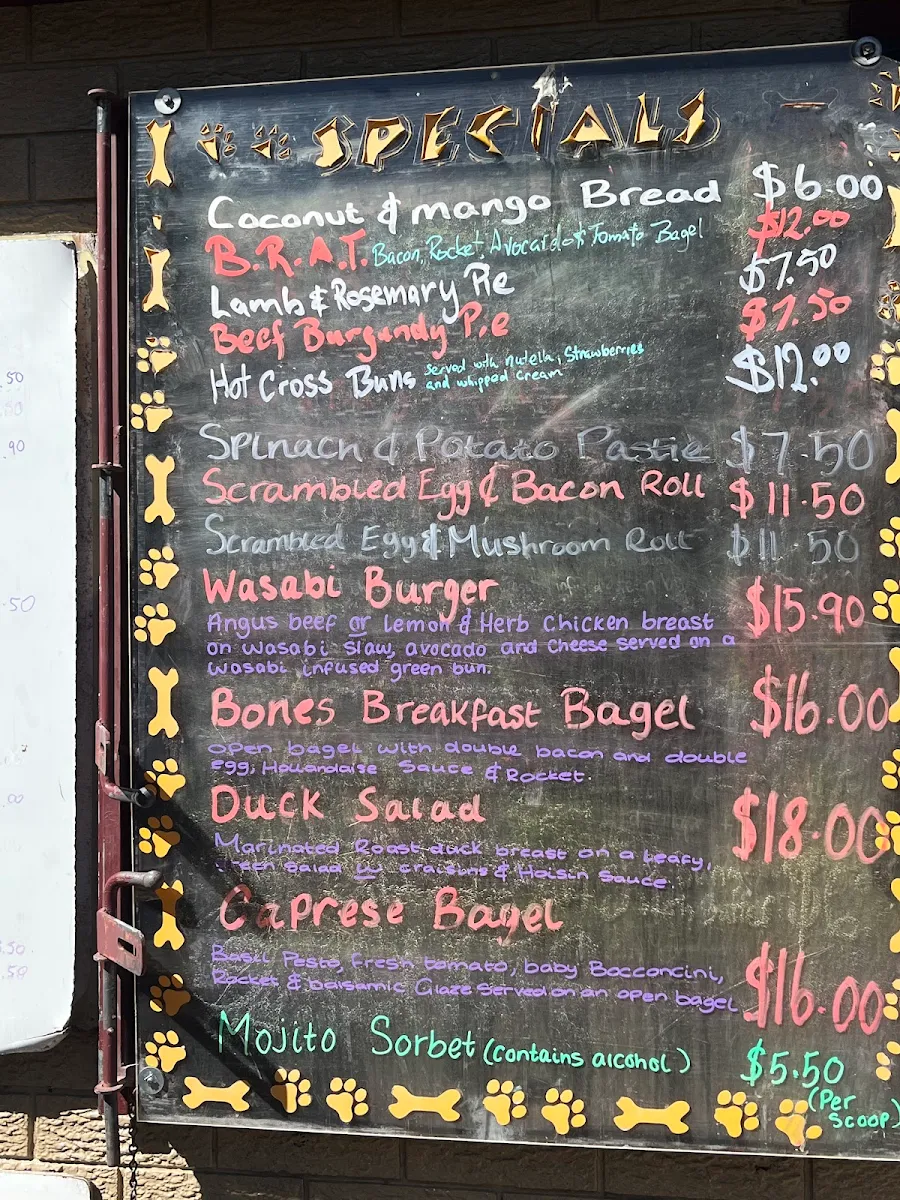 SPECIALS
Coconut & mango Bread $6.00
B.R.A.T. Bacon, Rocket, Avocardo & Tomato Bagel $12.00
Lamb & Rosemary Pie $7.50
Beef Burgundy Pie $7.50
Hot Cross Buns served with nutella, Strawberries and whipped cream $12.00
Spinach & Potato Pastie $7.50
Scrambled Egg & Bacon Roll $11.50
Scrambled Egg & Mushroom Roll $11.50
Wasabi Burger $15.90
Angus beef or Lemon & Herb Chicken breast
on wasabi slaw, avocado and cheese served on a
wasabi infused green bun.
Bones Breakfast Bagel $16.00
open bagel with double bacon and double
egg, Hollandaise Sauce & Rocket.
Duck Salad $18.00
Marinated Roast duck breast on a leafy,
green salad w craisins & Hoisin Sauce.
Caprese Bagel
Basil Pesto, fresh tomato, baby Bocconcini,
Rocket & balsamic Glaze served on an open bagel $16.00
Mojito Sorbet (contains alcohol) $5.50
(Per
scoop)
.50
.90
.50
.00
.50
.50